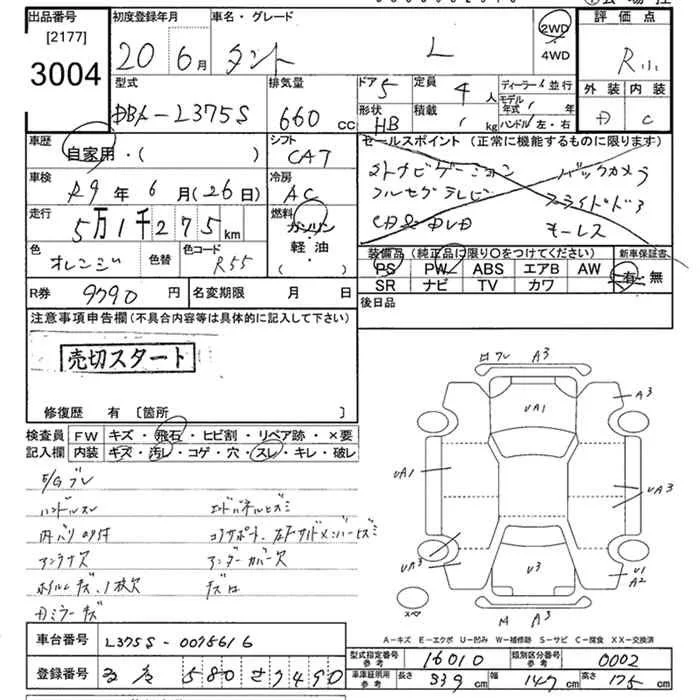 出品番号
[2177]
3004
初度登録年月
20 6月
車名・グレード
タント L
2WD
4WD
評価点
R
外装 内装
D C
型式
DBA-L375S
排気量
660 CC
ドア 5
形状 HB
定員 4 人
積載 kg
ディーラー 並行
モデル年式 年
ハンドル/左・右
車歴
自家用・( )
シフト
CAT
セールスポイント (正常に機能するものに限ります)
ストナビゲーション バックカメラ
フルセグテレビ スライドドア
CD&DVD キーレス
車検
R9年 6月(26日)
冷房
AC
走行
5万1千275km
燃料
ガソリン
軽・油
( )
色
オレンジ
色替
色コード
R55
装備品 (純正品に限り〇をつけてください)
PS PW ABS エアB AW
SR ナビ TV カワ
新車保証書
有・無
R券 9790 円
名変期限 月 日
後日品
注意事項申告欄(不具合内容等は具体的に記入して下さい)
売切スタート
修復歴 有 [箇所 ]
検査員
記入欄
FW キズ・飛石・ヒビ割・リペア跡・×要
内装 キズ・汚レ・コゲ・穴・スレ・キレ・破レ
E/Gブレ
ハンドルスレ
エンドパネルヒズミ
アンテナ欠
アンダーカバー欠
ホイルキズ、1枚欠
Dミラーキズ
A3
A3
UA1
UA1
UA3
UA3
U3
U1
A2
A3
A-キズ E-エクボ U-凹み W-補修跡 S-サビ C-腐食 XX-交換済
車台番号
L375S-0078616
登録番号
580 さ7490
型式指定番号
参考
16010
類別区分番号
参考
0002
車庫証明用
参考
長さ 339 cm
幅 147 cm
高さ 175 cm